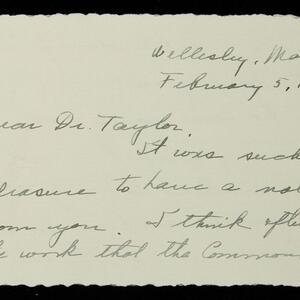 Wellesley, Ma
February 5, 1
ear Dr. Taylor,
It was such
leasure to have a no
om you. I think often
e work that the Commons